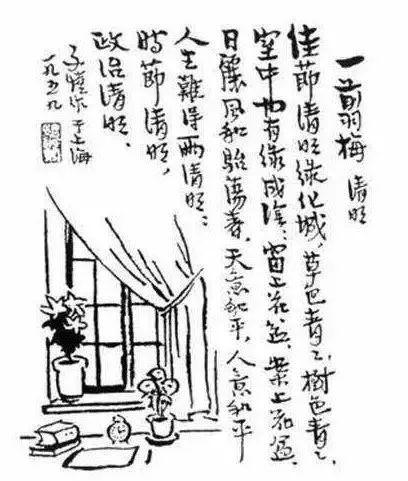 一翦梅 清明
佳節清明綠化城,草色青々,樹色青々,
室中也有綠成陰:窗上花盆、案上花瓶、
日麗風和駘蕩春,天意和平,人意和平
人生難得兩清明:
時節清明,
政治清明、
子愷作于上海
一九五九